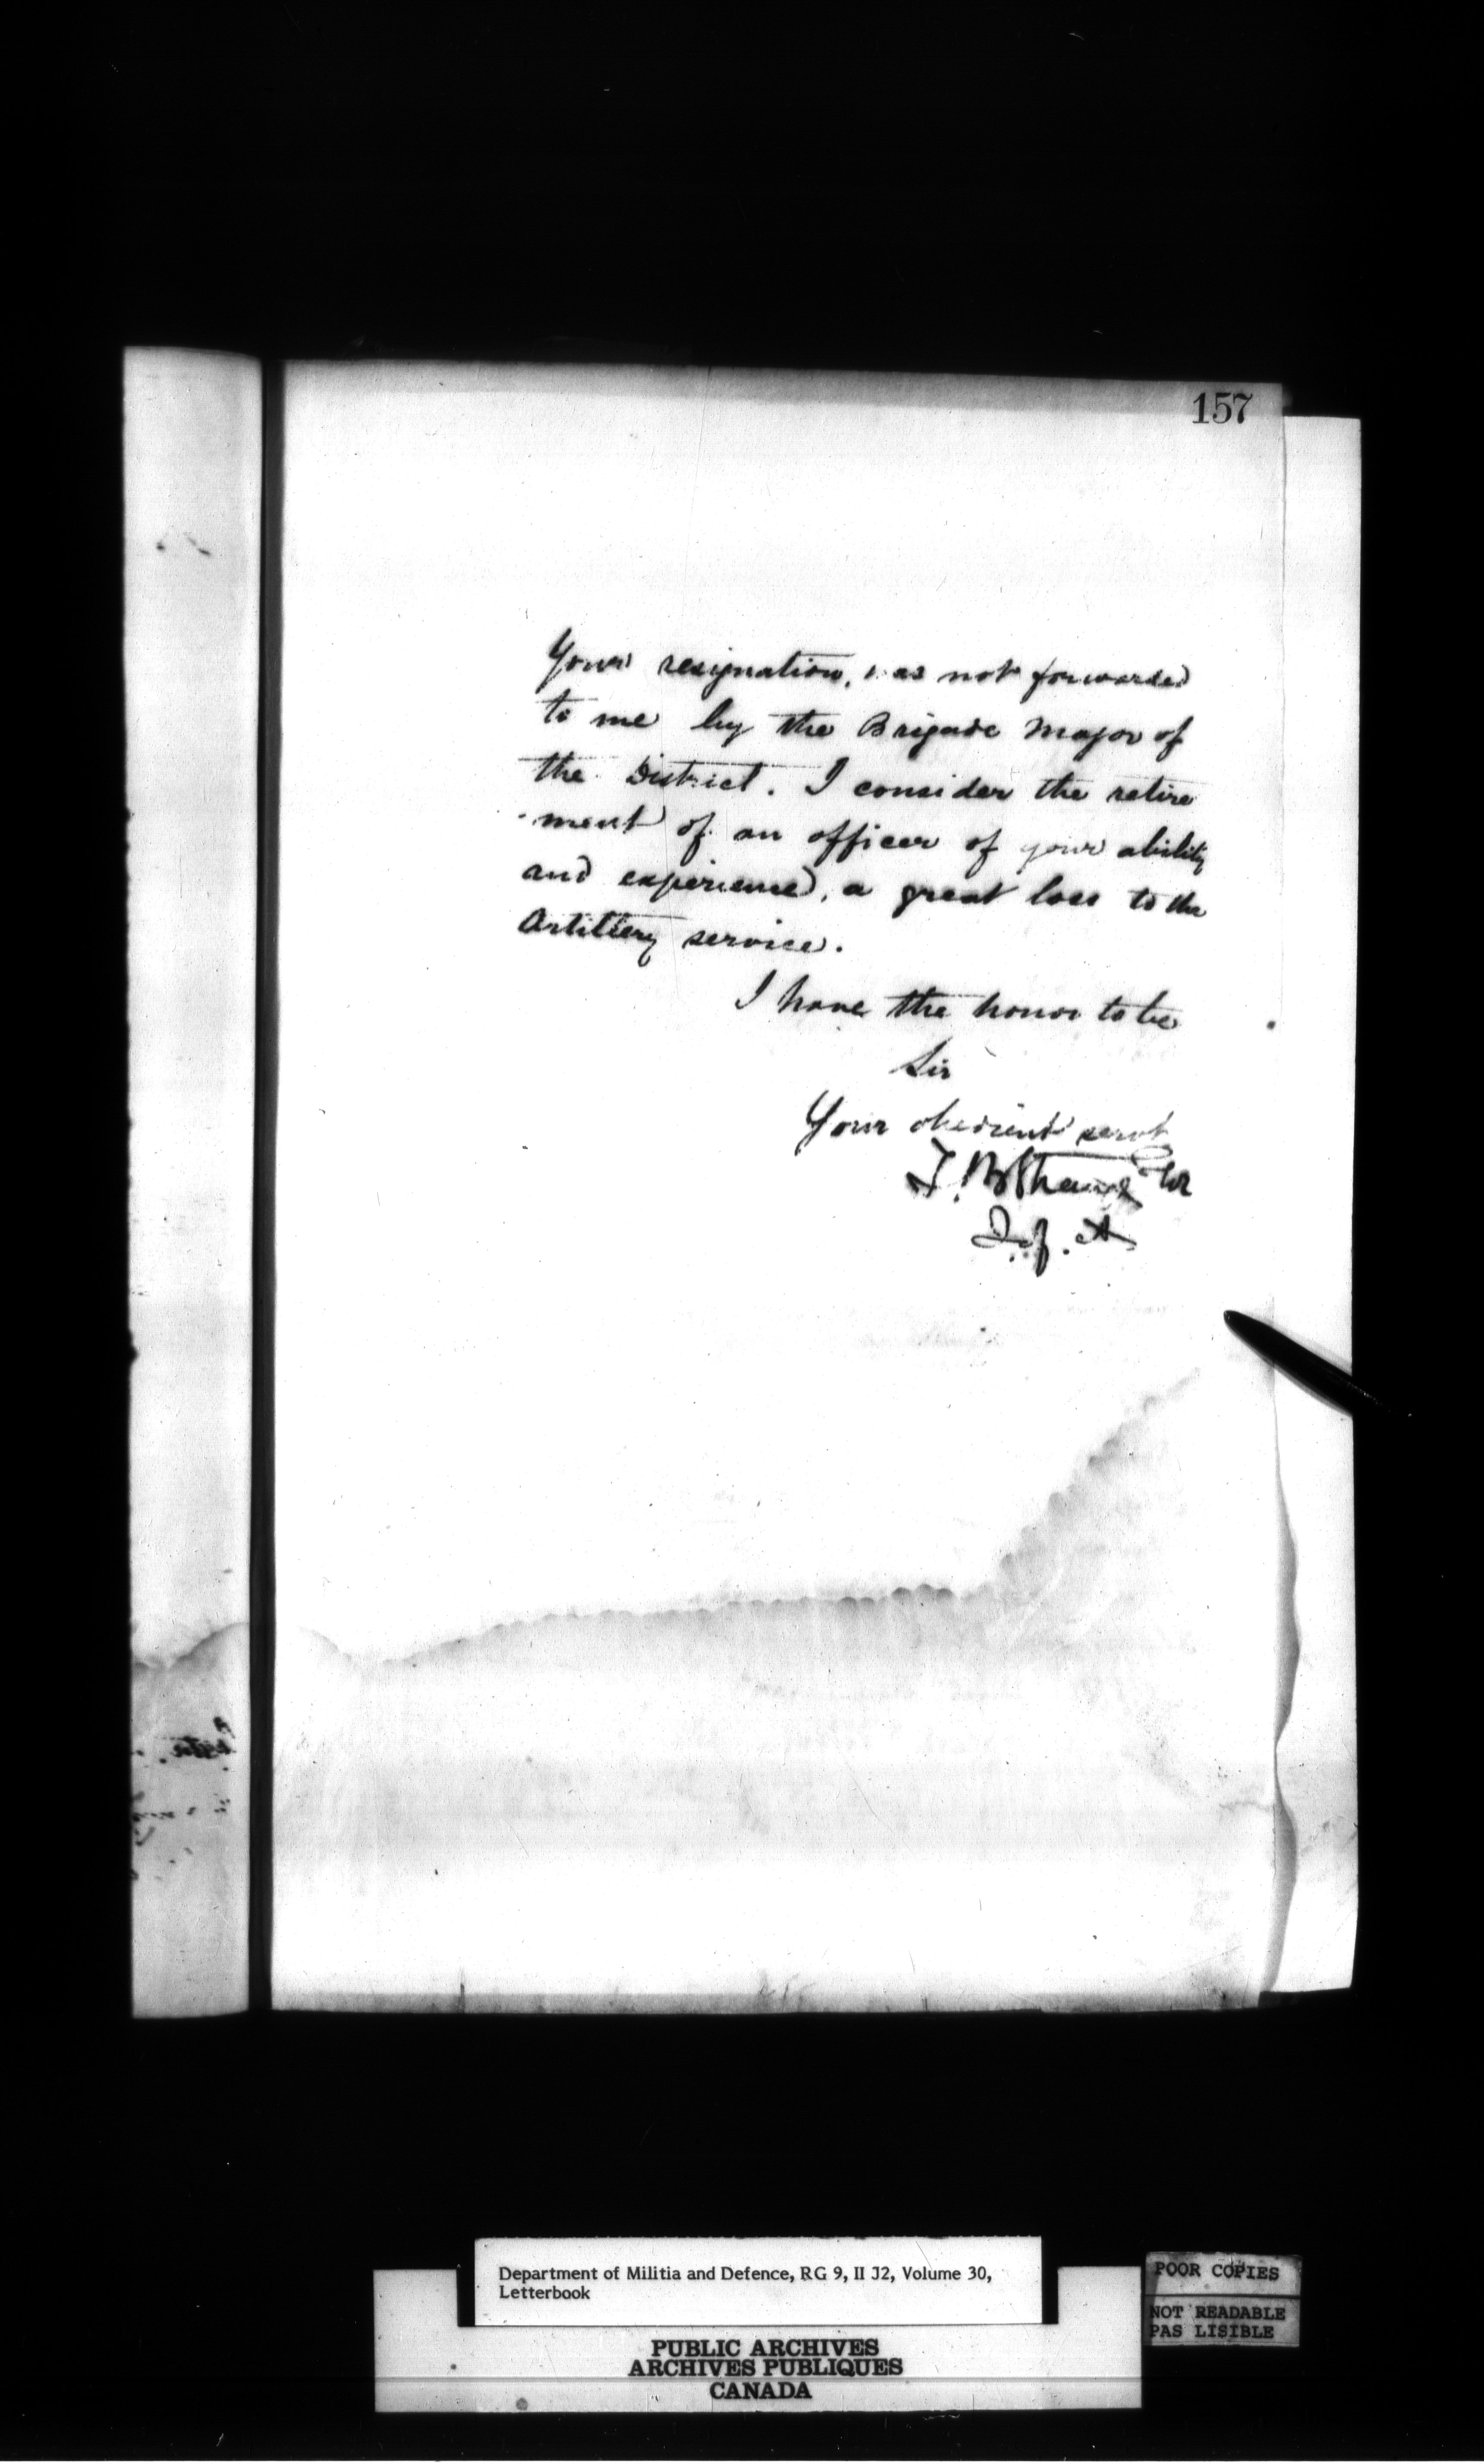 157
Your resignation, was not forwarded
to me by the Brigade Major of
the District. I consider the retire
-ment of an officer of your ability
and experience, a great loss to the
Artillery service.
I have the honor to be
Sir
Your obedient servt
T. B. Strange Lt Col
I. of A
Department of Militia and Defence, RG 9, II J2, Volume 30,
Letterbook
POOR COPIES
NOT READABLE
PAS LISIBLE
PUBLIC ARCHIVES
ARCHIVES PUBLIQUES
CANADA